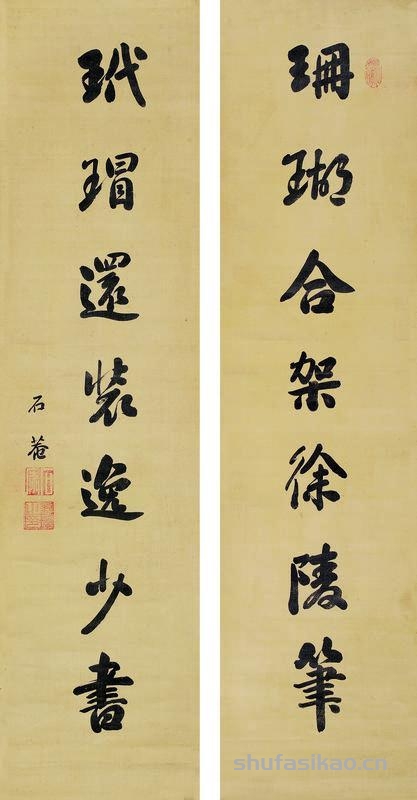 珊瑚合架徐陵筆
玳瑁還裝逸少書
石菴
shufasikao.cn